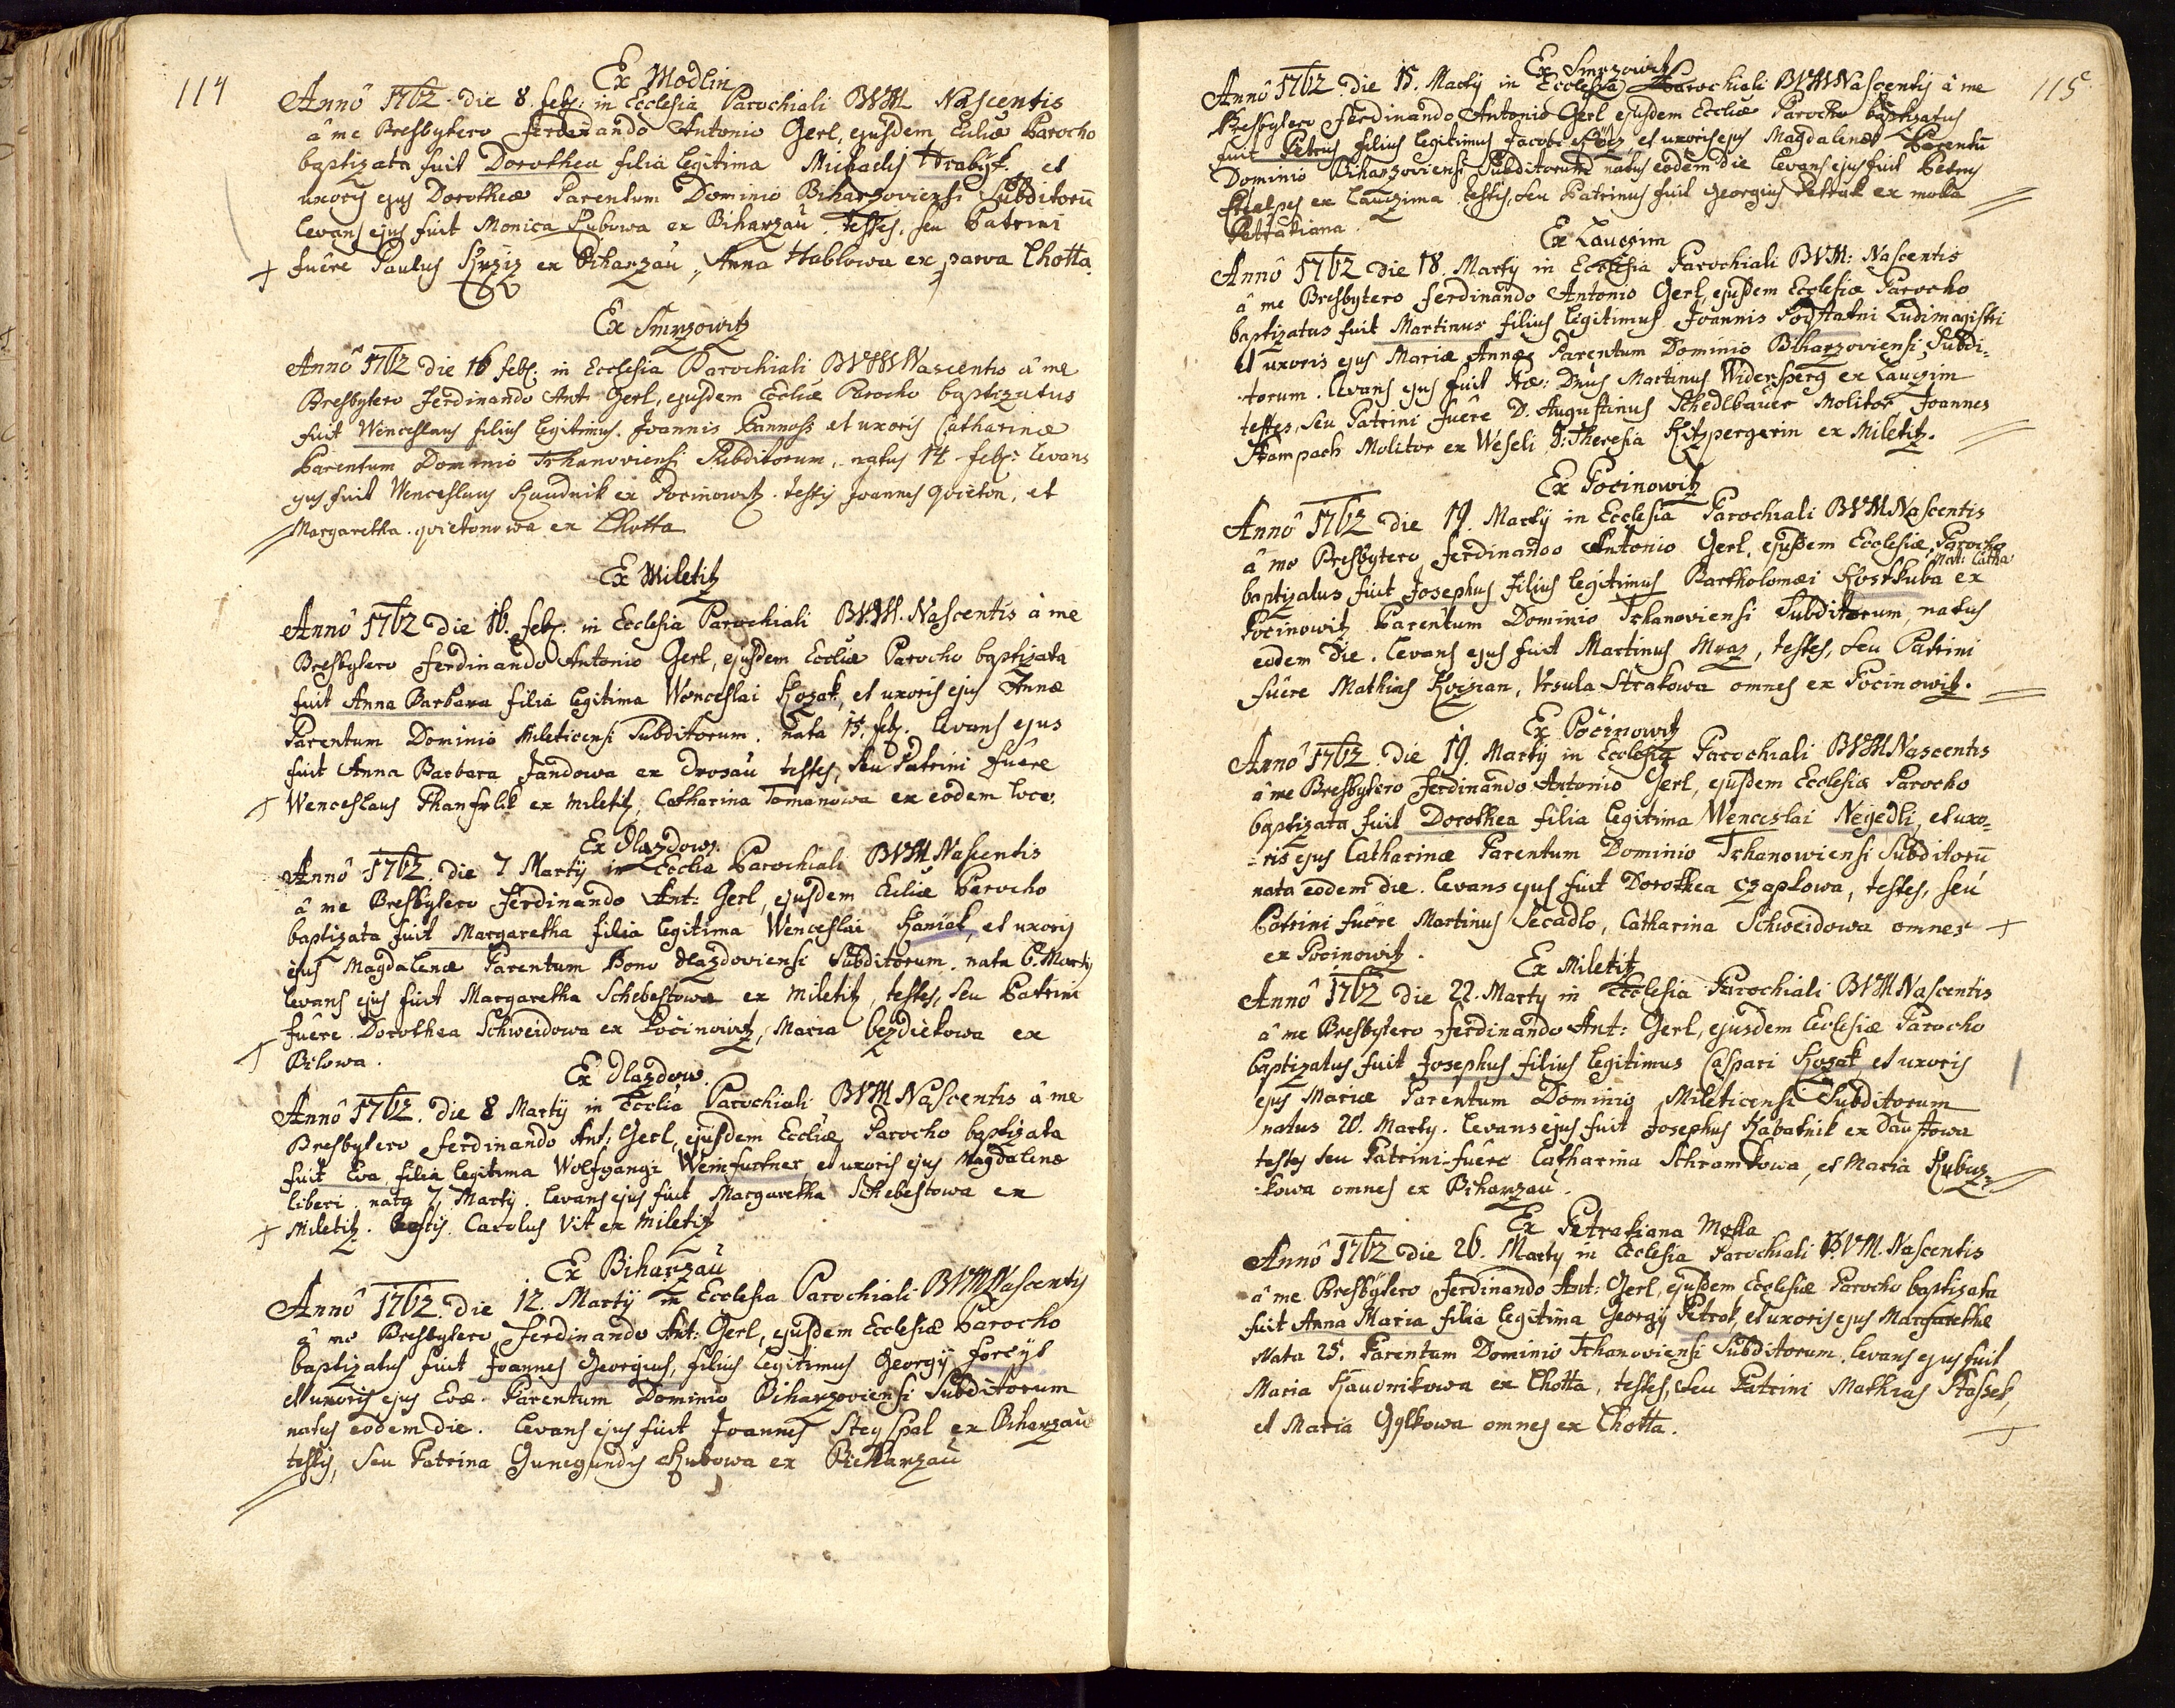 114
Ex Modlin
Annô 1762 die 8. feb: in Ecclesia Parochiali BVM Nascentis
â me Presbytero Ferdinando Antonio Gerl, ejusdem Eccliæ Parocho
baptizata fuit Dorothea filia legitima Michaelis Hrabÿk et
uxoris ejus Dorotheæ Parentum Dominio Biharzoviensi Subditorū
levans ejus fuit Monica Kubowa ex Biharzau. testes, seu Patrini
fuêre Paulus Krziz ex Biharzau, Anna Hablowa ex parva Lhotta
Ex Smrzowitz
Annô 1762 die 16 feb: in Ecclesia Parochiali BVM Nascentis â me
Presbytero Ferdinando Ant: Gerl, ejusdem Eccliæ Parocho baptizatus
fuit Wenceslaus filius legitimus Joannis et uxoris Catharinæ
Parentum Dominio Trhanoviensi Subditorum, natus 14 feb: levans
ejus fuit Wenceslaus Haudnik ex Pocinowitz. testis Joannes qvieton, et
Margaretha qvietonowa ex Lhotta
Ex Miletitz
Annô 1762 die 16. feb: in Ecclesia Parochiali B.V.M. Nascentis â me
Presbytero Ferdinando Antonio Gerl, ejusdem Eccliæ Parocho baptizata
fuit Anna Barbara filia legitima Wenceslai Kozak, et uxoris ejus Annæ
Parentum Dominio Mileticensi Subditorum. nata 15. feb. levans ejus
fuit Anna Barbara Jandowa ex Drosau testes, seu Patrini fuêre
Wenceslaus ex Miletitz, Catharina Tomanowa ex eodem loco.
Ex Dlazdow.
Annô 1762. die 7 Martÿ in Ecclia Parochiali BVM Nascentis
â me Presbytero Ferdinando Ant: Gerl, ejusdem Eccliæ Parocho
baptizata fuit Margaretha filia legitima Wenceslai Haniak, et uxoris
ejus Magdalenæ Parentum Bono Dlazdoviensi Subditorum. nata 6. Martÿ
levans ejus fuit Margaretha Schebestowa ex Miletitz, testes, seu Patrini
fuêre Dorothea Schweidowa ex Pocinowitz, Maria bezdiekowa ex
Bilowa.
Ex Dlazdow.
Annô 1762. die 8 Martÿ in Ecclia Parochiali BVM Nascentis â me
Presbytero Ferdinando Ant: Gerl, ejusdem Eccliæ Parocho baptizata
fuit Eva filia legitima Wolfgangi Weinfurtner, et uxoris ejus Magdalenæ
liberi. nata 7. Martÿ. levans ejus fuit Margaretha Schebestowa ex
Miletitz. testis Carolus Vit ex Miletitz
Ex Biharzau
Annô 1762. die 12. Martÿ in Ecclesia Parochiali BVM Nascentis
â me Presbytero Ferdinando Ant: Gerl, ejusdem Ecclesiæ Parocho
baptizatus fuit Joannes Georgius, filius legitimus Georgÿ
et uxoris ejus Evæ. Parentum Dominio Biharzoviensi Subditorum
natus eodem die. levans ejus fuit Joannes Steyspal ex Biharzau
testis, seu Patrina Gunegundis Kubowa ex Biharzau
115
Ex Smrzowitz
Annô 1762. die 15. Martÿ in Ecclesia Parochiali BVM Nascentis â me
Presbytero Ferdinando Antonio Gerl ejusdem Eccliæ Parocho baptizatus
fuit Petrus filius legitimus Jacobi et uxoris ejus Magdalenæ Parentū
Dominio Biharzoviensi Subditorum natus eodem die levans ejus fuit Petrus
ex Lauczima. testis, seu Patrinus fuit Georgius Petrak ex moha
Petrakiana.
Ex Lauczim
Annô 1762 die 18. Martÿ in Ecclesia Parochiali BVM: Nascentis
â me Presbytero Ferdinando Antonio Gerl, ejusdem Ecclesiæ Parocho
baptizatus fuit Martinus filius legitimus Joannis Ludimagistri
et uxoris ejus Mariæ Annæ Parentum Dominio Biharzoviensi Subdi-
-torum. levans ejus fuit Dnus Martinus Widersperg ex Lauczim
testes, seu Patrini fuêre D. Augustinus Schedlbauer Molitor Joannes
Stampach Molitor ex Weseli D: Theresia Kitzpergerin ex Miletitz.
Ex Pocinowitz
Annô 1762 die 19. Martÿ in Ecclesia Parochiali BVM Nascentis
â me Presbytero Ferdinando Antonio Gerl, ejusdem Ecclesiæ Parocho
Mat: Catha
baptizatus fuit Josephus filius legitimus Bartholomæi Kostkuba ex
Pocinowitz Parentum Dominio Trhanoviensi Subditorum, natus
eodem die. levans ejus fuit Martinus Mraz, testes, seu Patrini
fuêre Mathias Koczian, Ursula Strakowa omnes ex Pocinowitz.
Ex Pocinowitz
Annô 1762. die 19. Martÿ in Ecclesia Parochiali BVM Nascentis
â me Presbytero Ferdinando Antonio Gerl, ejusdem Ecclesiæ Parocho
baptizata fuit Dorothea filia legitima Wenceslai Negedli, et uxo-
-ris ejus Catharinæ Parentum Dominio Trhanowiensi Subditorū
nata eodem die. levans ejus fuit Dorothea czapkowa, testes, seu
Patrini fuêre Martinus Secadlo, Catharina Schweidowa omnes
ex Pocinowitz.
Ex Miletitz
Annô 1762 die 22. Martÿ in Ecclesia Parochiali BVM Nascentis
â me Presbytero Ferdinando Ant: Gerl, ejusdem Ecclesiæ Parocho
baptizatus fuit Josephus filius legitimus Caspari Kozak, et uxoris
ejus Mariæ Parentum Dominio Mileticensi Subditorum
natus 20. Martÿ. levans ejus fuit Josephus Kabatnik ex Daustowa
testes seu Patrini fuêre Catharina Schramkowa, et Maria Kubuz-
-kowa omnes ex Biharzau.
Ex Petrakiana Moha
Annô 1762 die 26. Martÿ in Ecclesia Parochiali B.V.M. Nascentis
â me Presbytero Ferdinando Ant: Gerl, ejusdem Ecclesiæ Parocho baptizata
fuit Anna Maria filia legitima Georgÿ Petrak, et uxoris ejus Margarethæ
Nata 25. Parentum Dominio Trhanoviensi Subditorum. levans ejus fuit
Maria Haudnikowa ex Lhotta, testes, seu Patrini Mathias Stassek,
et Maria Gylkowa omnes ex Lhotta.